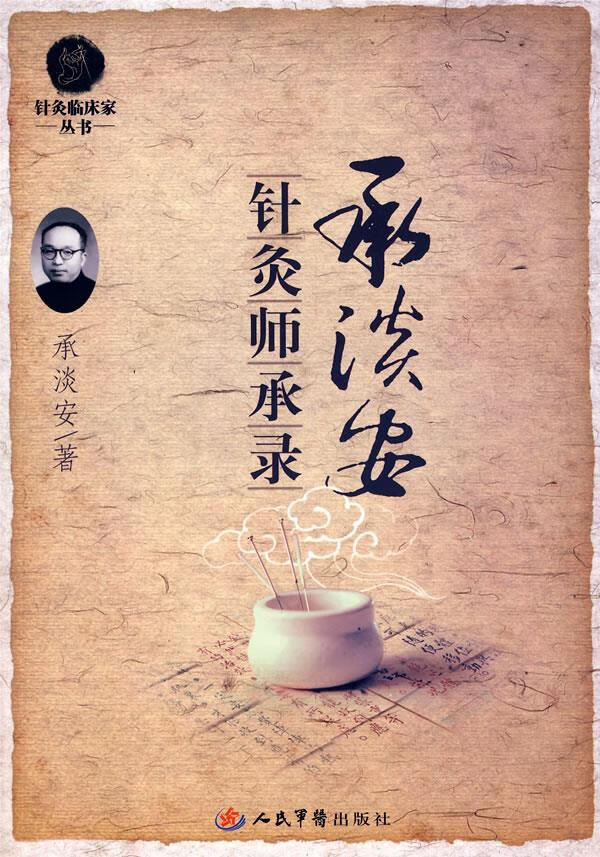 针灸临床家
丛书
承淡安
针灸师承录
承淡安/著
人民軍醫出版社